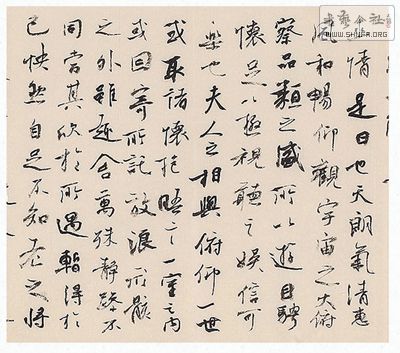 情是日也天朗氣清惠
風和暢仰觀宇宙之大俯
察品類之盛所以遊目騁
懷足以極視聽之娛信可
樂也夫人之相與俯仰一世
或取諸懷抱晤言一室之內
或因寄所託放浪形骸
之外雖趣舍萬殊靜躁不
同當其欣於所遇暫得於
己快然自足不知老之將